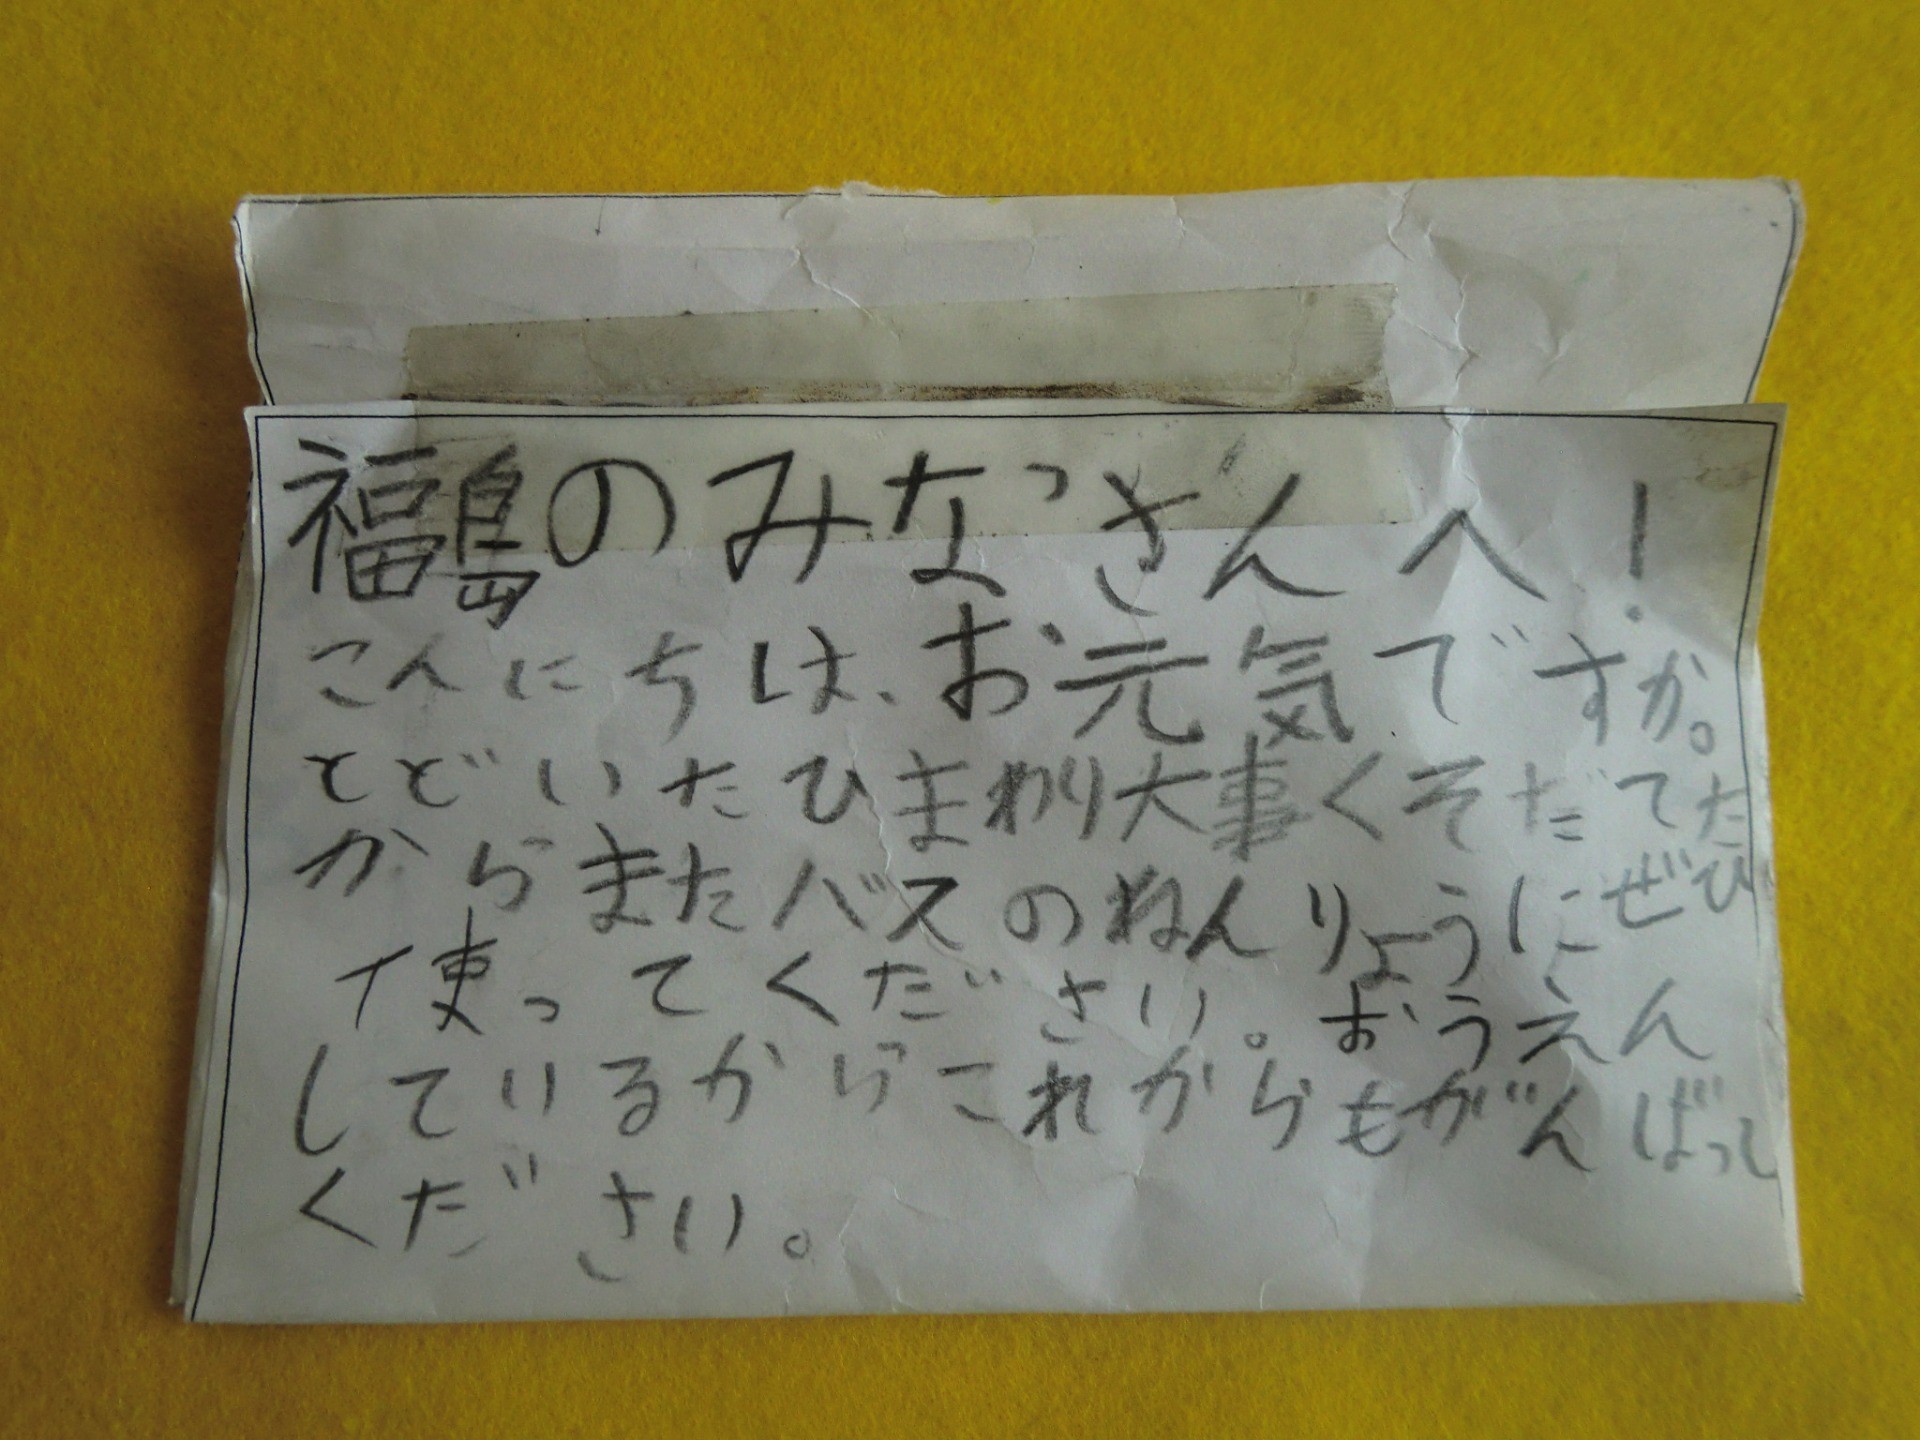 福島のみなさんへ!
こんにちは、お元気ですか。
とどいたひまわり大事くそだてた
からまたバスのねんりょうにぜひ
使ってください。おうえん
しているからこれからもがんばって
ください。